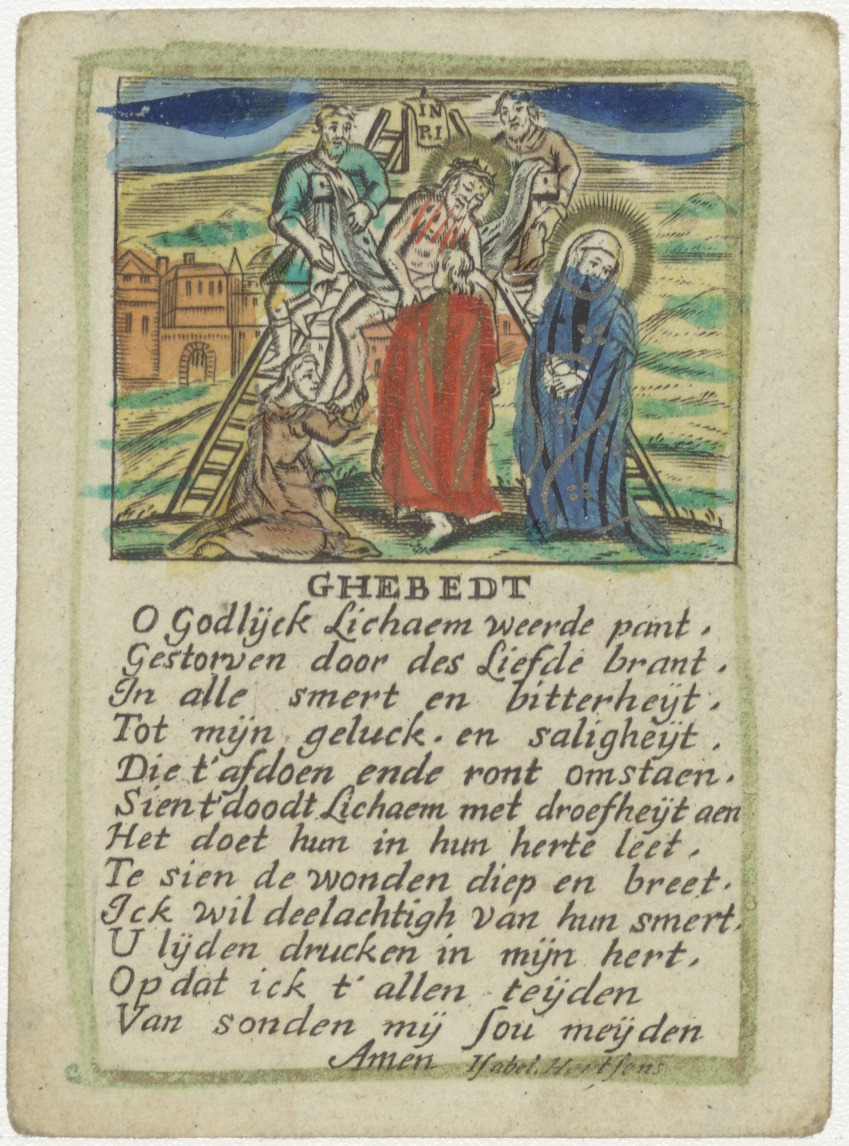 IN
RI
GHEBEDT
O Godlijck Lichaem weerde pant.
Gestorven door des Liefde brant.
In alle smert en bitterheijt.
Tot mijn geluck. en saligheijt.
Die t'afdoen ende ront omstaen.
Sien t'doodt Lichaem met droefheijt aen
Het doet hun in hun herte leet.
Te sien de wonden diep en breet.
Ick wil deelachtigh van hun smert.
U lijden drucken in mijn hert.
Op dat ick t' allen teijden
Van sonden mij sou meijden
Amen Ysabel. Hertsens